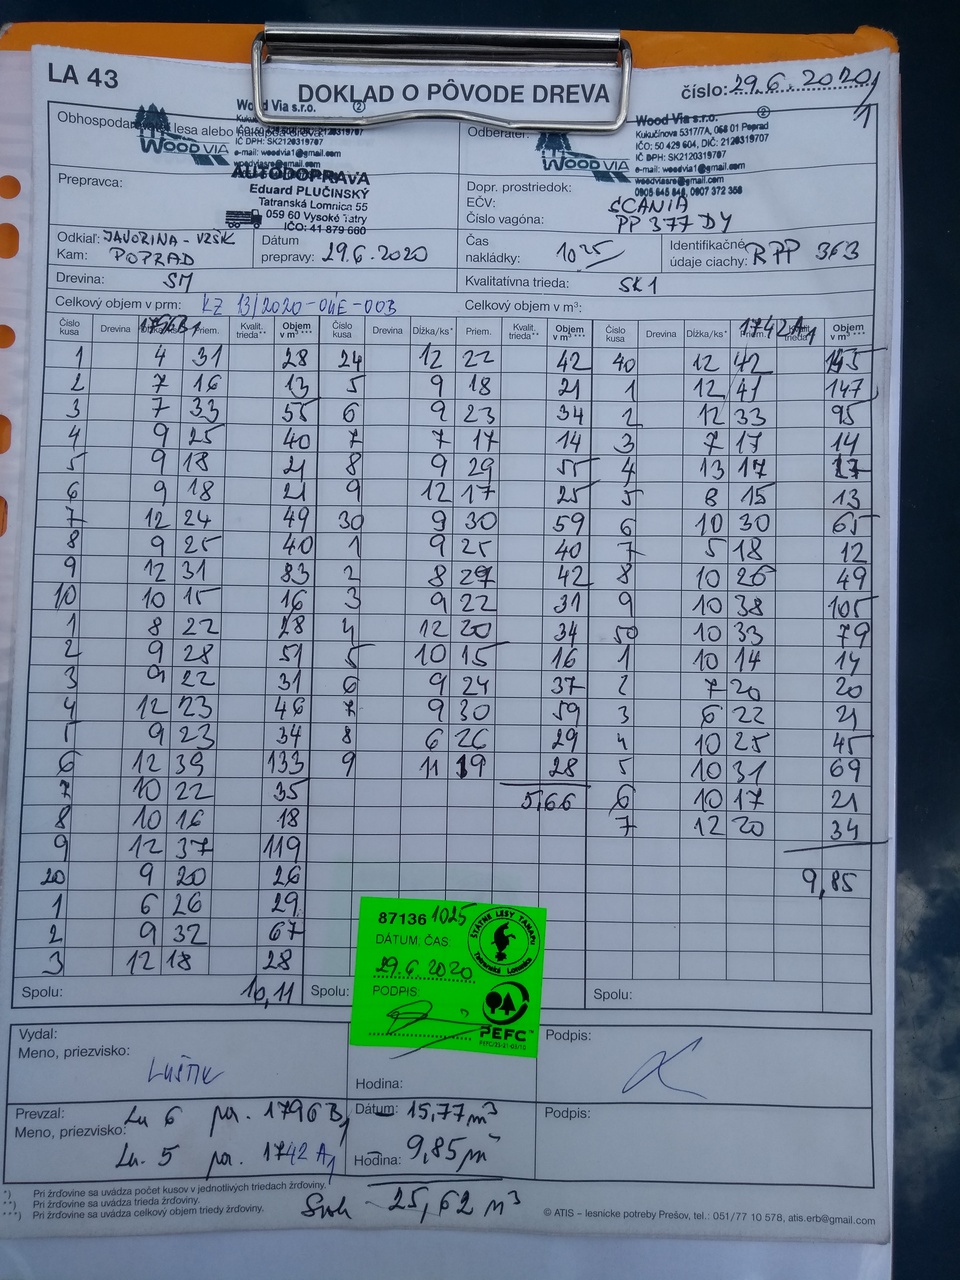 LA 43
DOKLAD O PÔVODE DREVA
číslo: 29.6.2020/1
Obhospodar lesa alebo
Wood Via s.r.o. 2
IČ DPH: SK2120319707
e-mail: woodvia1@gmail.com
WOOD VIA
Odberateľ:
Wood Via s.r.o. 2
Kukučínova 5317/7A, 058 01 Poprad
IČO: 50 429 604, DIČ: 2120319707
IČ DPH: SK2120319707
e-mail: woodvia1@gmail.com
woodviasro@gmail.com
0905 645 848, 0907 372 356
WOOD VIA
Prepravca:
AUTODOPRAVA
Eduard PLUČINSKÝ
Tatranská Lomnica 55
059 60 Vysoké Tatry
IČO: 41 879 660
Dopr. prostriedok:
EČV: SCANIA
Číslo vagóna: PP 377 DY
Odkiaľ: JAVORINA - VZŠK
Kam: POPRAD
Dátum prepravy: 29.6.2020
Čas nakládky: 10 25
Identifikačné údaje ciachy: RPP 363
Drevina: SM
Kvalitatívna trieda: SK1
Celkový objem v prm: KZ 13/2020-04E-003
Celkový objem v m³:
Číslo kusa Drevina Priem. Kvalit. trieda** Objem v m³*** Číslo kusa Drevina Dĺžka/ks* Priem. Kvalit. trieda** Objem v m³*** Číslo kusa Drevina Dĺžka/ks* 1742 A1 Objem v m³***
1 4 31 28 24 12 22 42 40 12 42 165
2 7 16 13 5 9 18 21 1 12 41 147
3 7 33 55 6 9 23 34 2 12 33 95
4 9 25 40 7 7 17 14 3 7 17 14
5 9 18 21 8 9 29 55 4 13 17 27
6 9 18 21 9 12 17 25 5 8 15 13
7 12 24 49 30 9 30 59 6 10 30 65
8 9 25 40 1 9 25 40 7 5 18 12
9 12 31 83 2 8 27 42 8 10 26 49
10 10 15 16 3 9 22 31 9 10 38 105
1 8 22 28 4 12 20 34 50 10 33 79
2 9 28 51 5 10 15 16 1 10 14 14
3 9 22 31 6 9 24 37 2 7 20 20
4 12 23 46 7 9 30 59 3 6 22 21
5 9 23 34 8 6 26 29 4 10 25 45
6 12 39 133 9 11 19 28 5 10 31 69
7 10 22 35 5,66 6 10 17 21
8 10 16 18 7 12 20 34
9 12 37 119
20 9 20 26 9,85
1 6 26 29
2 9 32 67
3 12 18 28
Spolu: 10,11 Spolu: Spolu:
87136 1025
DÁTUM, ČAS:
29.6.2020
PODPIS
ŠTÁTNE LESY TANAPU
Tatranská Lomnica
PEFC
Vydal:
Meno, priezvisko:
LUŠTIK
Hodina:
Podpis:
Prevzal: Lu 6 por. 1796 B1
Dátum: 15,77 m³
Podpis:
Meno, priezvisko: Lu. 5 por. 1742 A1
Hodina: 9,85 m³
25,62 m³
*) Pri žrďovine sa uvádza počet kusov v jednotlivých triedach žrďoviny.
**) Pri žrďovine sa uvádza trieda žrďoviny.
***) Pri žrďovine sa uvádza celkový objem triedy žrďoviny.
© ATIS – lesnícke potreby Prešov, tel.: 051/77 10 578, atis.erb@gmail.com